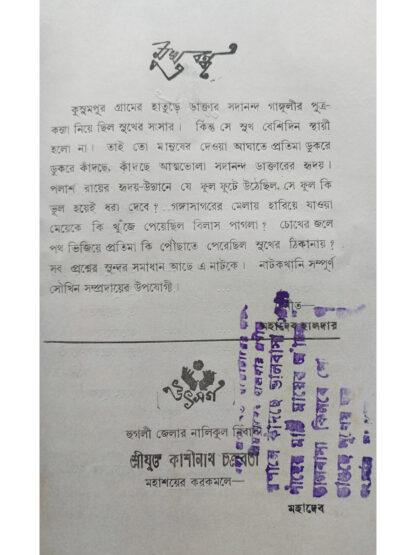 মুখবন্ধ
কুসুমপুর গ্রামের হাতুড়ে ডাক্তার সদানন্দ গাঙ্গুলীর পুত্র-
কন্যা নিয়ে ছিল সুখের সংসার। কিন্তু সে সুখ বেশিদিন স্থায়ী
হলো না। তাই তো মানুষের দেওয়া আঘাতে প্রতিমা ডুকরে
ডুকরে কাঁদছে, কাঁদছে আত্মভোলা সদানন্দ ডাক্তারের হৃদয়।
পলাশ রায়ের হৃদয়-উদ্যানে যে ফুল ফুটে উঠেছিল, সে ফুল কি
ভুল হয়েই ধরা দেবে? গঙ্গাসাগরের মেলায় হারিয়ে যাওয়া
মেয়েকে কি খুঁজে পেয়েছিল বিলাস পাগলা? চোখের জলে
পথ ভিজিয়ে প্রতিমা কি পৌঁছাতে পেরেছিল সুখের ঠিকানায়?
সব প্রশ্নের সুন্দর সমাধান আছে এ নাটকে। নাটকখানি সম্পূর্ণ
সৌখিন সম্প্রদায়ের উপযোগী।
মহাদেব হালদার
উৎসর্গ
হুগলী জেলার নালিকুল নিবাসী
শ্রীযুক্ত কাশীনাথ চক্রবর্তী
মহাশয়ের করকমলে—
মহাদেব